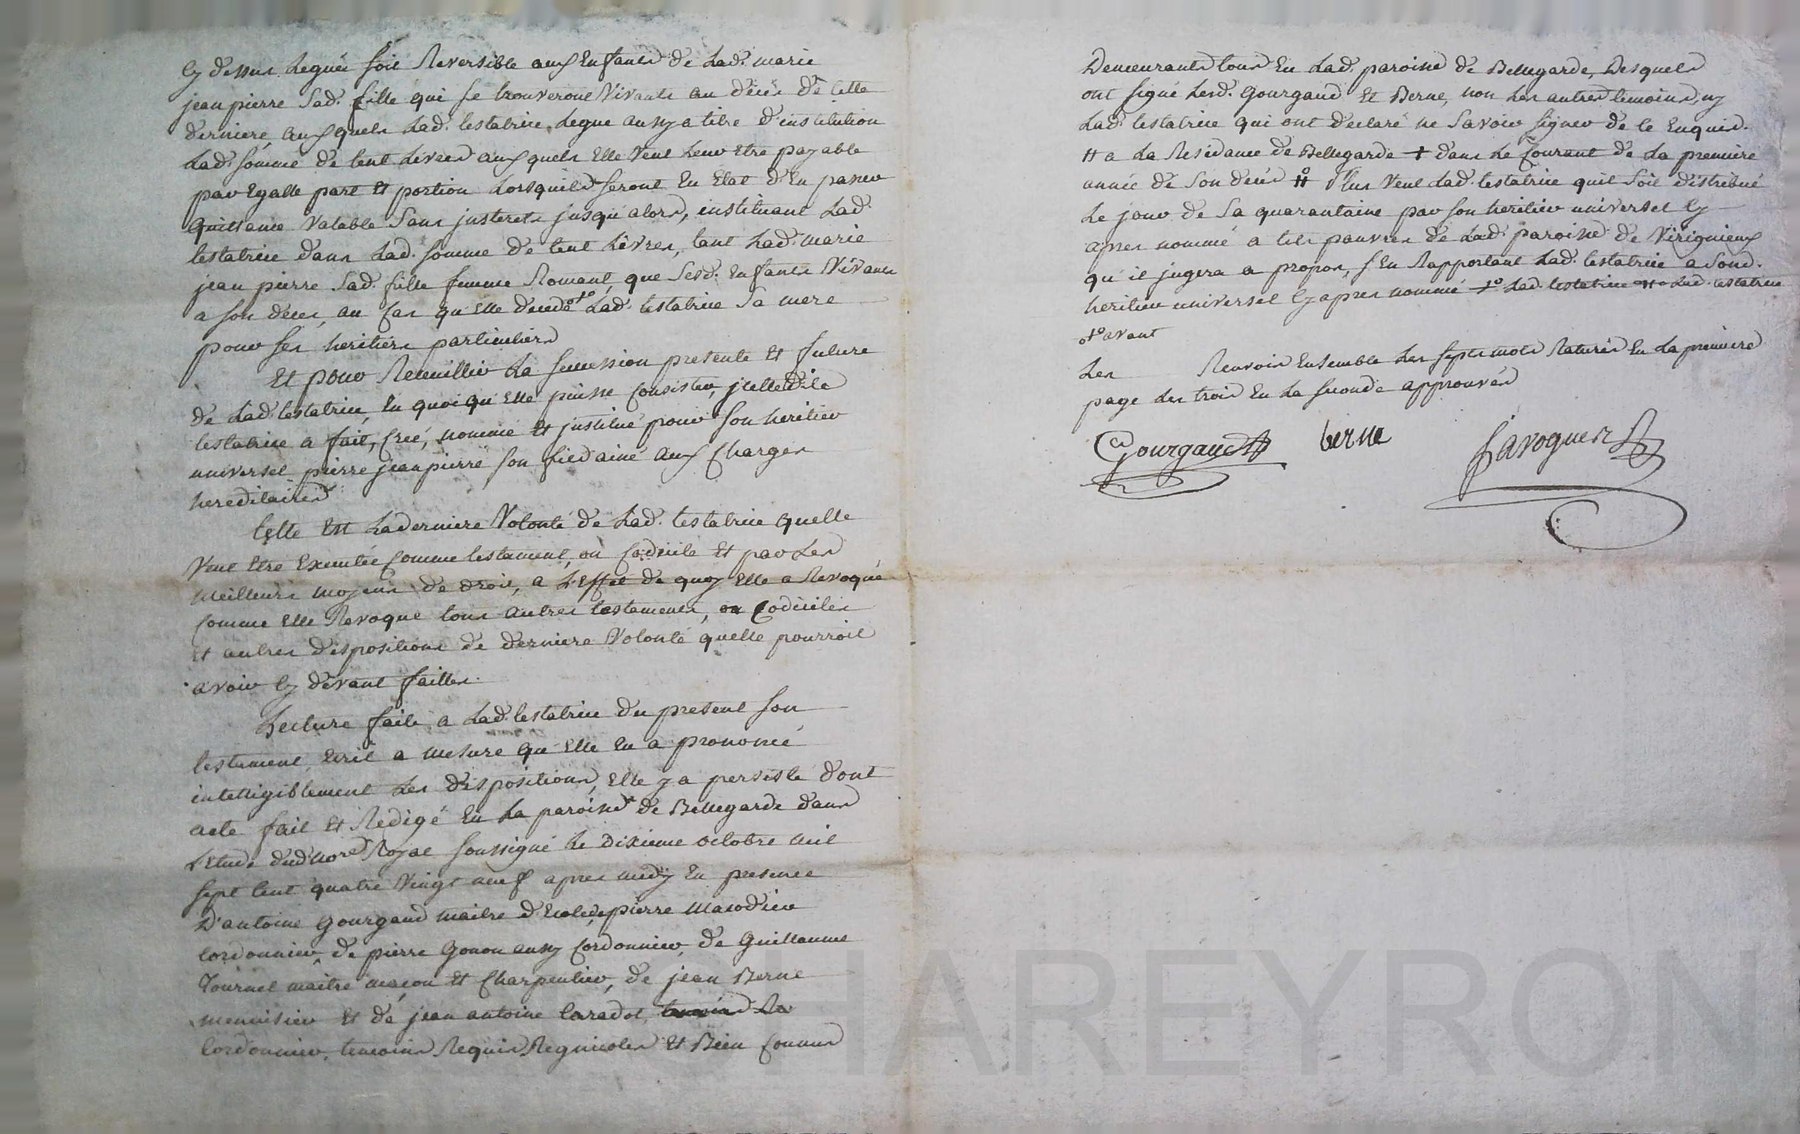 cy dessus leguée soit Reversible aux Enfants de Lad. marie
jean pierre sad. fille qui se trouveront Vivants au décès de cette
derniere, auxquels Lad. testatrice Legue aussy a titre d'institution
Lad. somme de cent Livres auxquels Elle Veut Leur Etre payable
par Egalle part Et portion Lorsquils seront En Etat d'En passer
quittance Valable sans jnterets jusqu'alors, instituant Lad.
testatrice dans Lad. somme de cent Livres, tant Lad. marie
jean pierre sad. fille femme Romant, que sesd. Enfants Vivants
a son déces, au Cas qu'Elle décede Lad. testatrice sa mere
pour ses heritiers particuliers
Et pour Recueillir La succession presente Et future
de Lad. testatrice, En quoi qu'Elle puisse Consister, jcelle
testatrice a fait, Creé, nommé Et jnstitué pour son heritier
universel pierre jean pierre son fils ainé aux Charges
hereditaires
Celle Est La derniere Volonté de Lad. testatrice quelle
Veut Etre Executée Comme testament, ou Codicile Et par Les
meilleurs moyens de droit, a L'Effet de quoy Elle a Revoqué
Comme Elle Revoque tous autres testaments, ou Codiciles
Et autres dispositions de derniere Volonté quelle pourroit
avoir cy devant faittes.
Lecture faite, a Lad. testatrice du present son
testament, Ecrit a mesure qu'Elle En a prononcé
intelligiblement Les dispositions, Elle y a persisté dont
acte fait Et Redigé En La paroisse de Bellegarde dans
L'Etude dud. no.re Royal soussigné Le dixieme octobre mil
sept cent quatre Vingt neuf apres midy En presence
D'antoine Gourgaud maitre d'Ecole, de pierre
cordonnier, de pierre Gonon aussy Cordonnier, de Guillaume
Tournel maitre maçon Et Charpentier, de jean Berne
menuisier Et de jean antoine
Cordonnier, temoins Requis Regnicoles Et Bien Connus
Demeurants tous En Lad. paroisse de Bellegarde, Desquels
ont signé Lesd. Gourgaud Et Berne, non Les autres temoins, ny
Lad. testatrice qui ont declaré ne Savoir signer de ce Enquis.
# a La Residance de Bellegarde + dans Le Courant de La premiere
année de Son decès # Plus Veut Lad. testatrice quil Soit distribué
Le jour de Sa quarantaine par son heritier universel cy
apres nommé a tels pauvres de Lad. paroisse de Virignieux
qu'il jugera a propos, s'En Rapportant Lad. testatrice a Sond.
heritier universel cy apres nommé +° Lad. testatrice #° Lad. testatrice
avant
Les Renvois Ensemble Les sept mots Raturés En La premiere
page Les trois En La seconde approuvés
Gourgaud berne Javogues
CHAREYRON